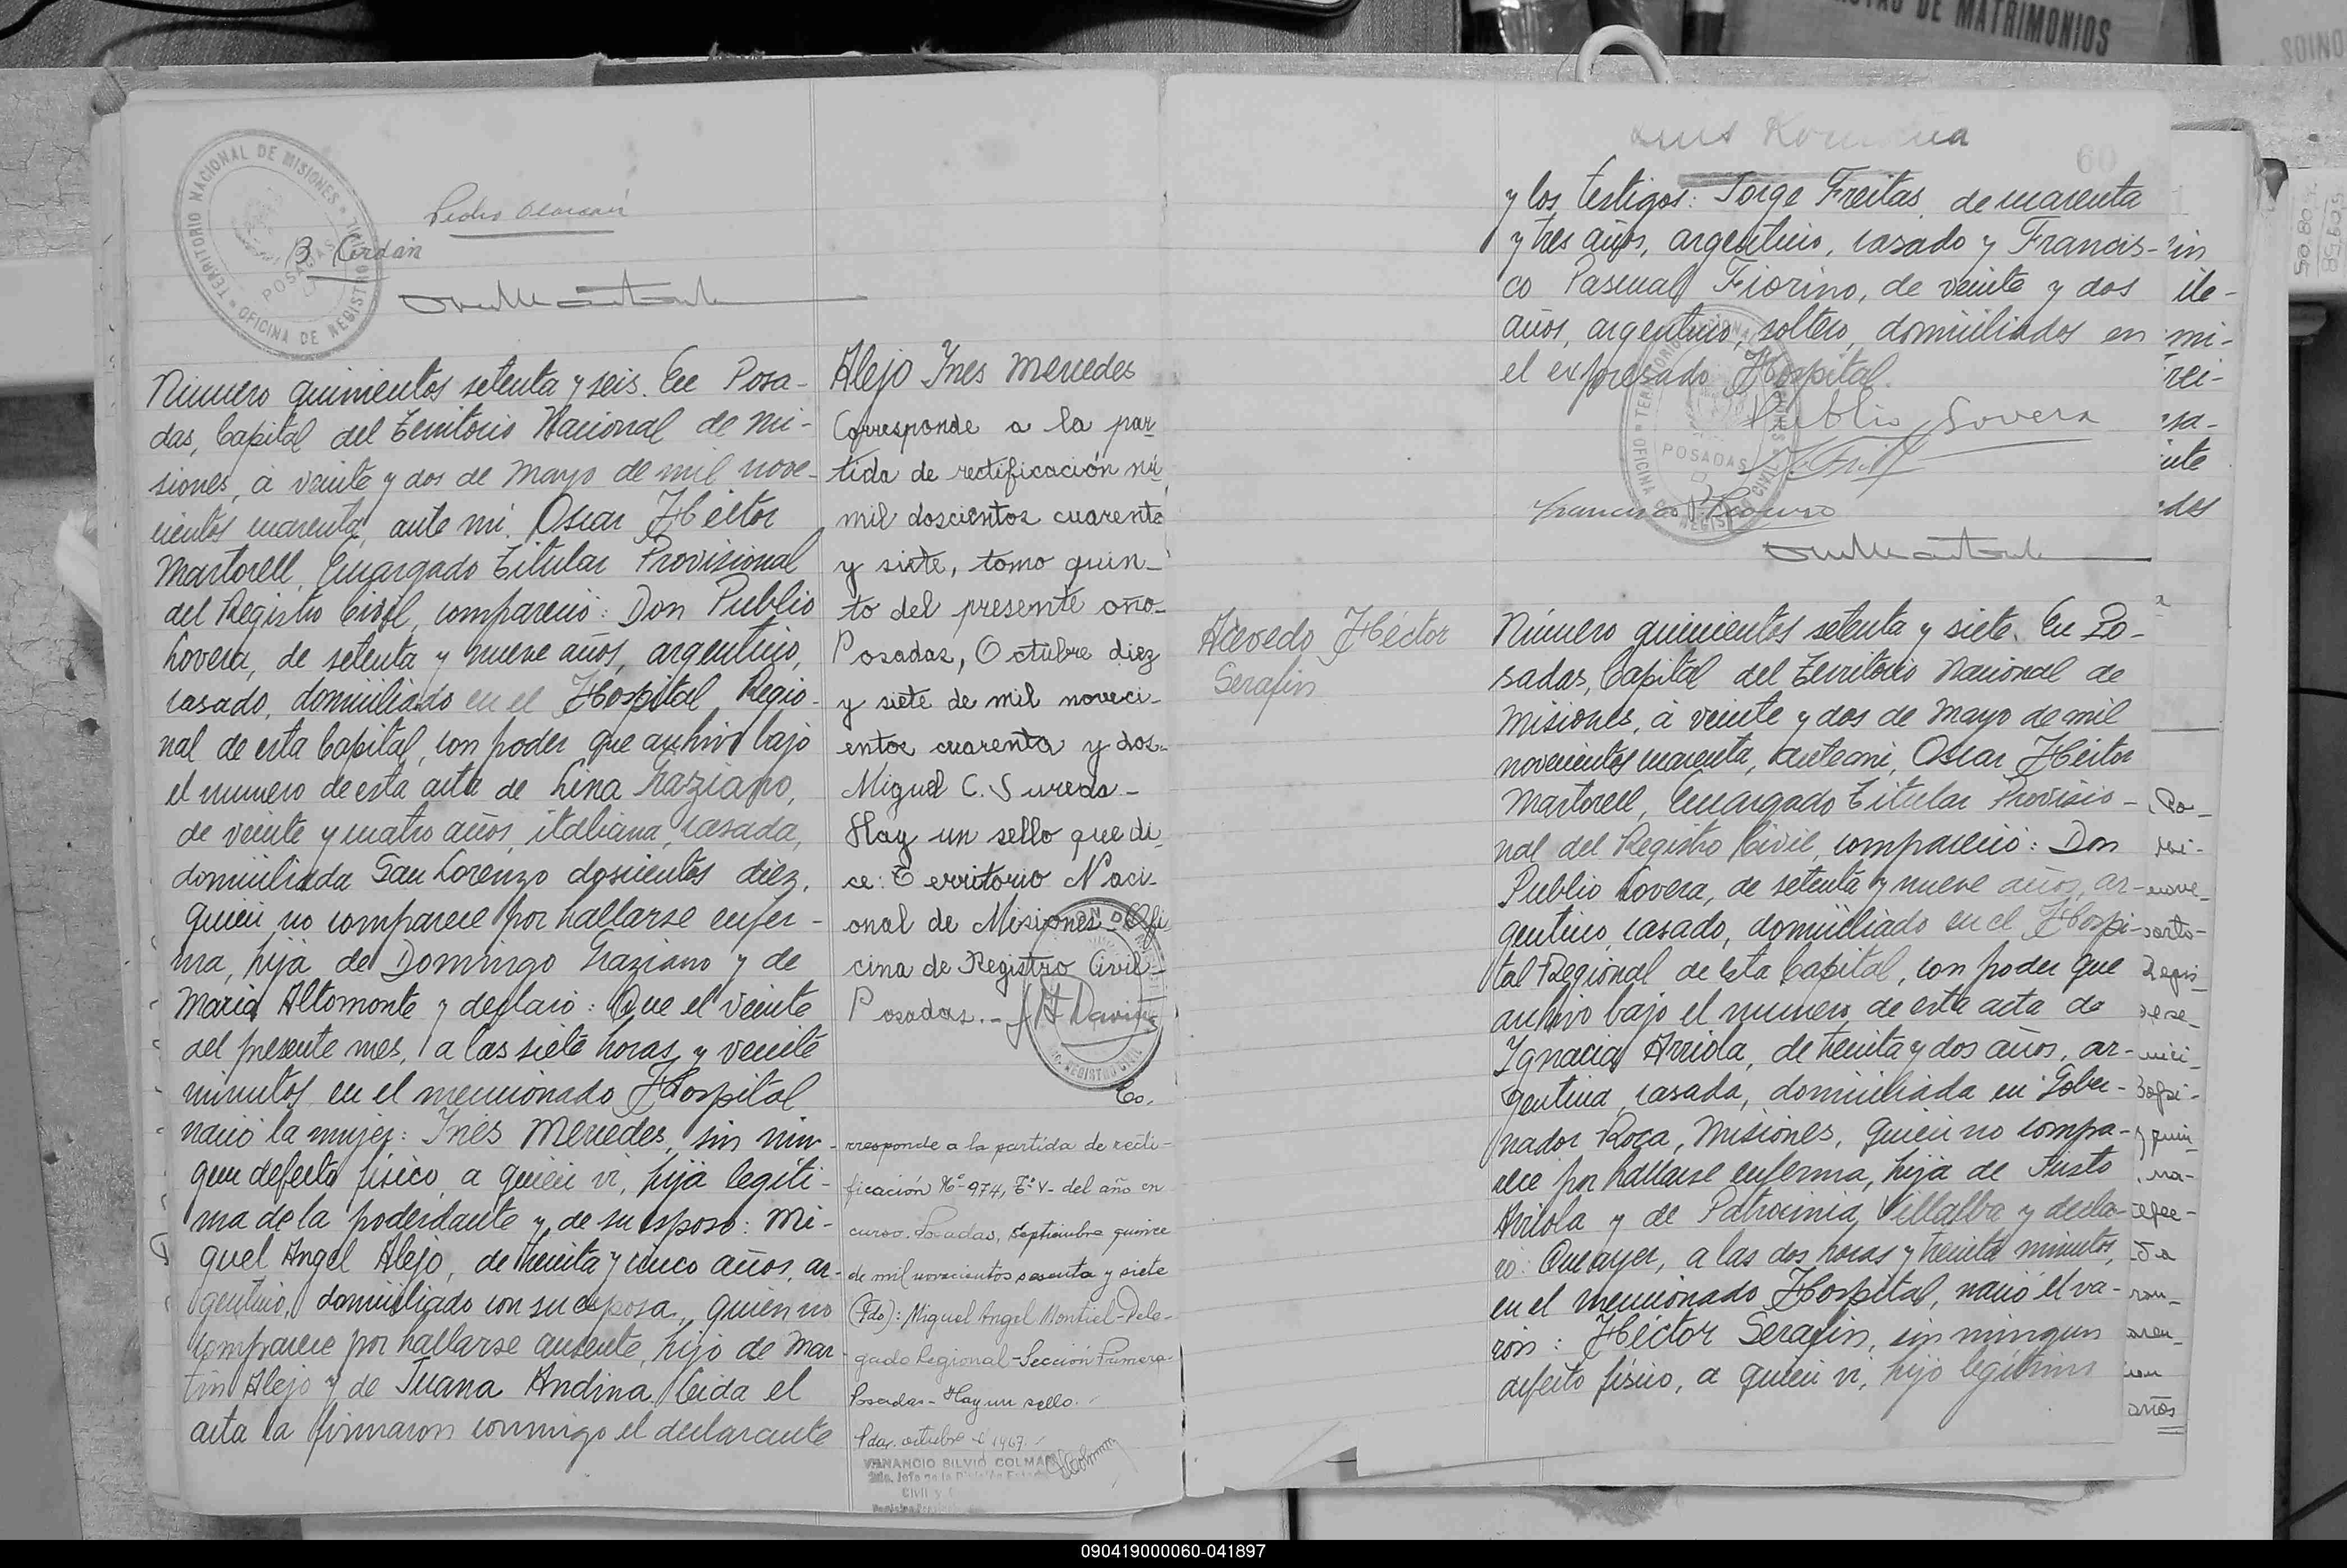 DE MATRIMONIOS
TERRITORIO NACIONAL DE MISIONES
OFICINA DE REGISTRO CIVIL
POSADAS
Pedro
B. Cerdán
Número quinientos setenta y seis. En Posa-
das, Capital del Territorio Nacional de Mi-
siones, á veinte y dos de Mayo de mil nove-
cientos cuarenta, ante mi, Oscar Héctor
Martorell, Encargado Titular Provisional
del Registro Civil, compareció: Don Publio
Lovera, de setenta y nueve años, argentino,
casado, domiciliado en el Hospital Regio-
nal de esta Capital, con poder que archivo bajo
el numero de esta acta de Lina Graziano,
de veinte y cuatro años, italiana, casada,
domiciliada San Lorenzo doscientos diez,
quien no comparece por hallarse enfer-
ma, hija de Domingo Graziano y de
María Altomonte y declaró: Que el veinte
del presente mes, a las siete horas y veinte
minutos en el mencionado Hospital
nació la mujer: Inés Mercedes, sin nin-
gun defecto físico, a quien vi, hija legíti-
ma de la poderdante y de su esposo: Mi-
guel Angel Alejo, de treinta y cinco años, ar-
gentino, domiciliado con su esposa, quien no
comparece por hallarse ausente, hijo de Mar-
tín Alejo y de Juana Andina. Leida el
acta la firmaron conmigo el declarante
Alejo Ynes Mercedes
Corresponde a la par-
tida de rectificación nú
mil doscientos cuarenta
y siete, tomo quin-
to del presente año-
Posadas, Octubre diez
y siete de mil noveci-
entos cuarenta y dos-
Miguel C. Sureda-
Hay un sello que di
ce: Territorio Naci-
onal de Misiones-Ofi
cina de Registro Civil-
Posadas.-
Co.
rresponde a la partida de recti-
ficación Nº 974, Tº V- del año en
curso. Posadas, septiembre quince
de mil novecientos sesenta y siete
(Fdo): Miguel Angel Montiel-Dele-
gado Regional-Sección Primera-
Posadas-Hay un sello.
Pdas. octubre 1967.
VENANCIO SILVIO COLMAN
60
y los testigos: Jorge Freitas, de cuarenta
y tres años, argentino, casado y Francis-
co Pascual Fiorino, de veinte y dos
años, argentino, soltero, domiciliados en
el expresado Hospital.
Publio Lovera
Acevedo Héctor
Serafin
Número quinientos setenta y siete. En Po-
sadas, Capital del Territorio Nacional de
Misiones, á veinte y dos de Mayo de mil
novecientos cuarenta, ante mi, Oscar Héctor
Martorell, Encargado Titular Provisio-
nal del Registro Civil, compareció: Don
Publio Lovera, de setenta y nueve años, ar-
gentino, casado, domiciliado en el Hospi-
tal Regional de esta Capital, con poder que
archivo bajo el numero de esta acta de
Ignacia Arriola, de treinta y dos años, ar-
gentina, casada, domiciliada en Gober-
nador Roca, Misiones, quien no compa-
rece por hallarse enferma, hija de Justo
Arriola y de Patrocinia Villalba y decla-
ró: Que ayer, a las dos horas y treinta minutos,
en el mencionado Hospital, nació el va-
rón: Héctor Serafin, sin ningun
defecto físico, a quien vi, hijo legítimo
años
090419000060-041897